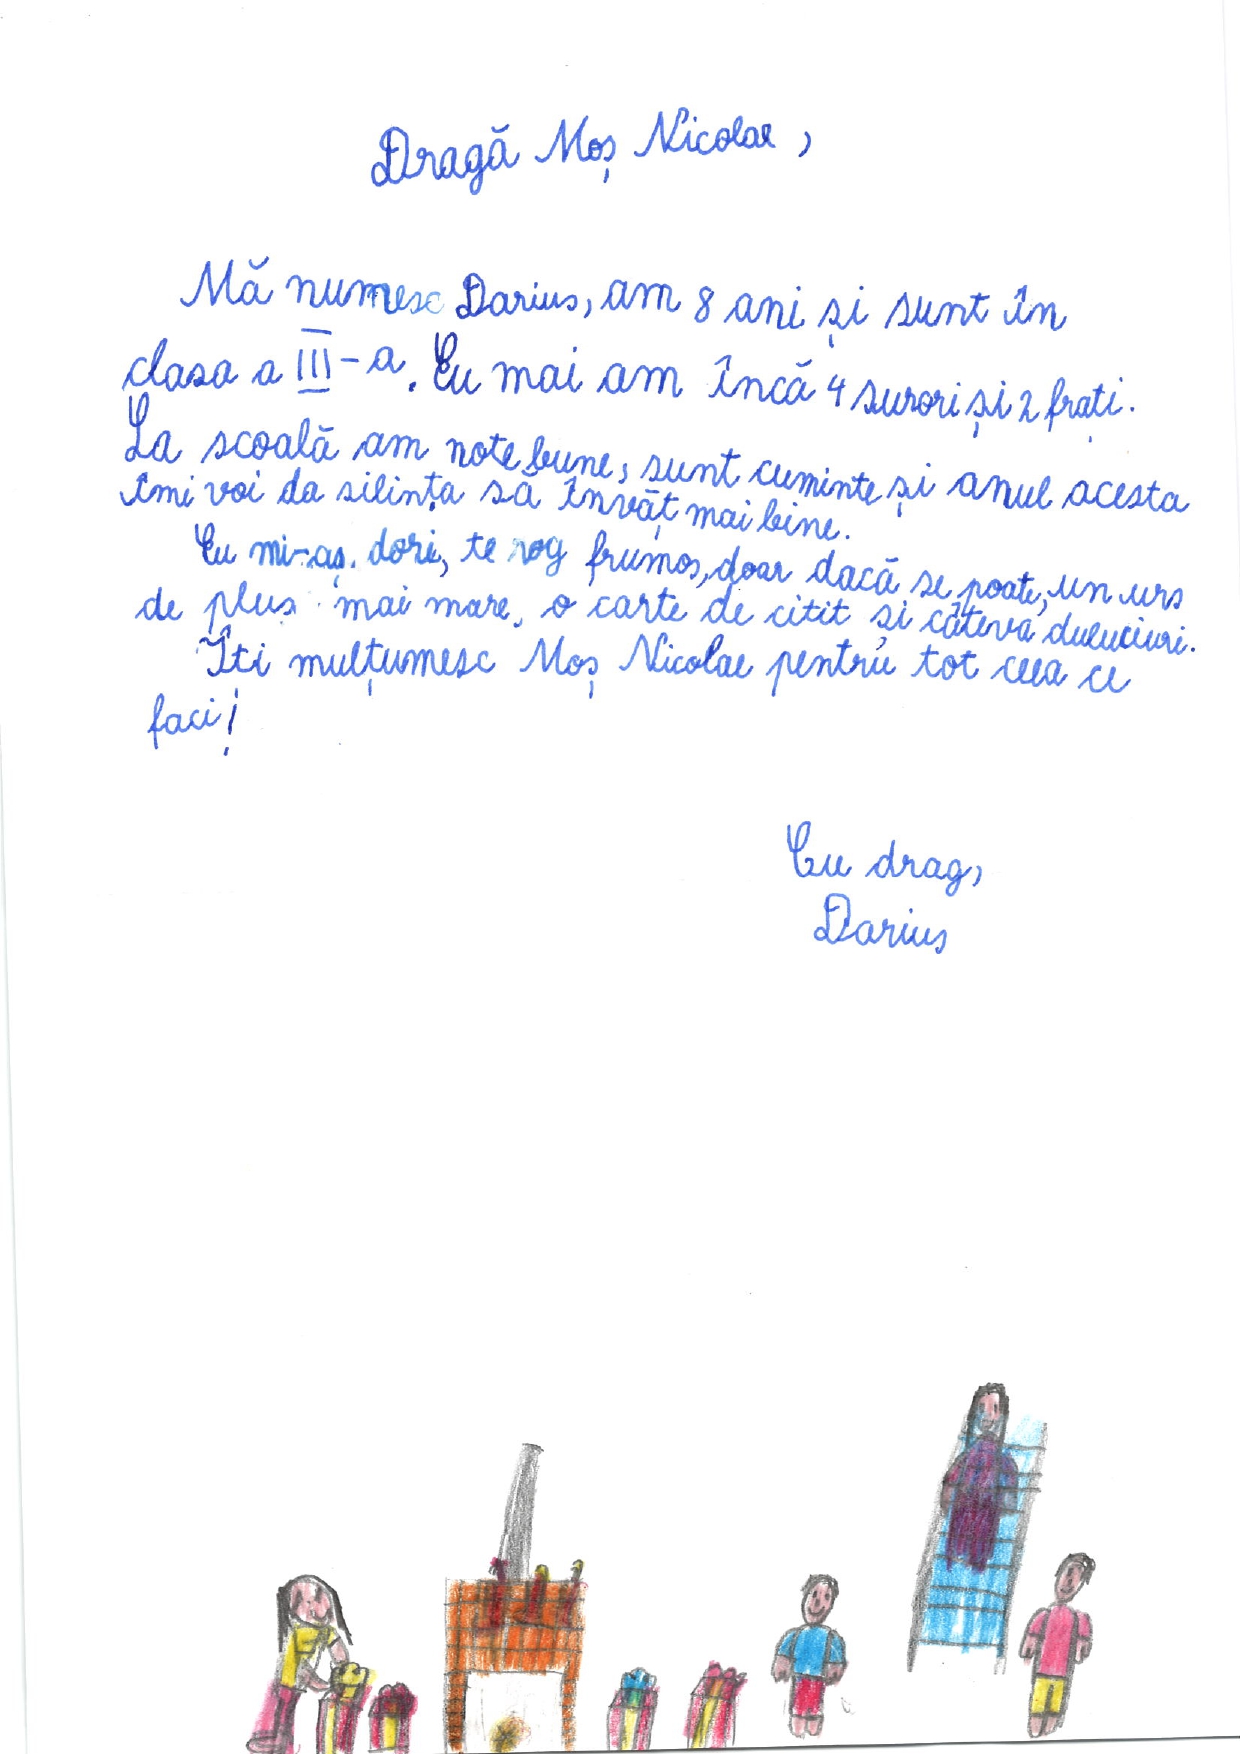 Dragă Moș Nicolae,
Mă numesc Darius, am 8 ani și sunt în
clasa a III-a. Eu mai am încă 4 surori și 2 frați.
La scoală am note bune, sunt cuminte și anul acesta
îmi voi da silința să învăț mai bine.
Eu mi-aș dori, te rog frumos, doar dacă se poate, un urs
de pluș mai mare, o carte de citit si câteva dulciuri.
Îti mulțumesc Moș Nicolae pentru tot ceea ce
faci!
Cu drag,
Darius